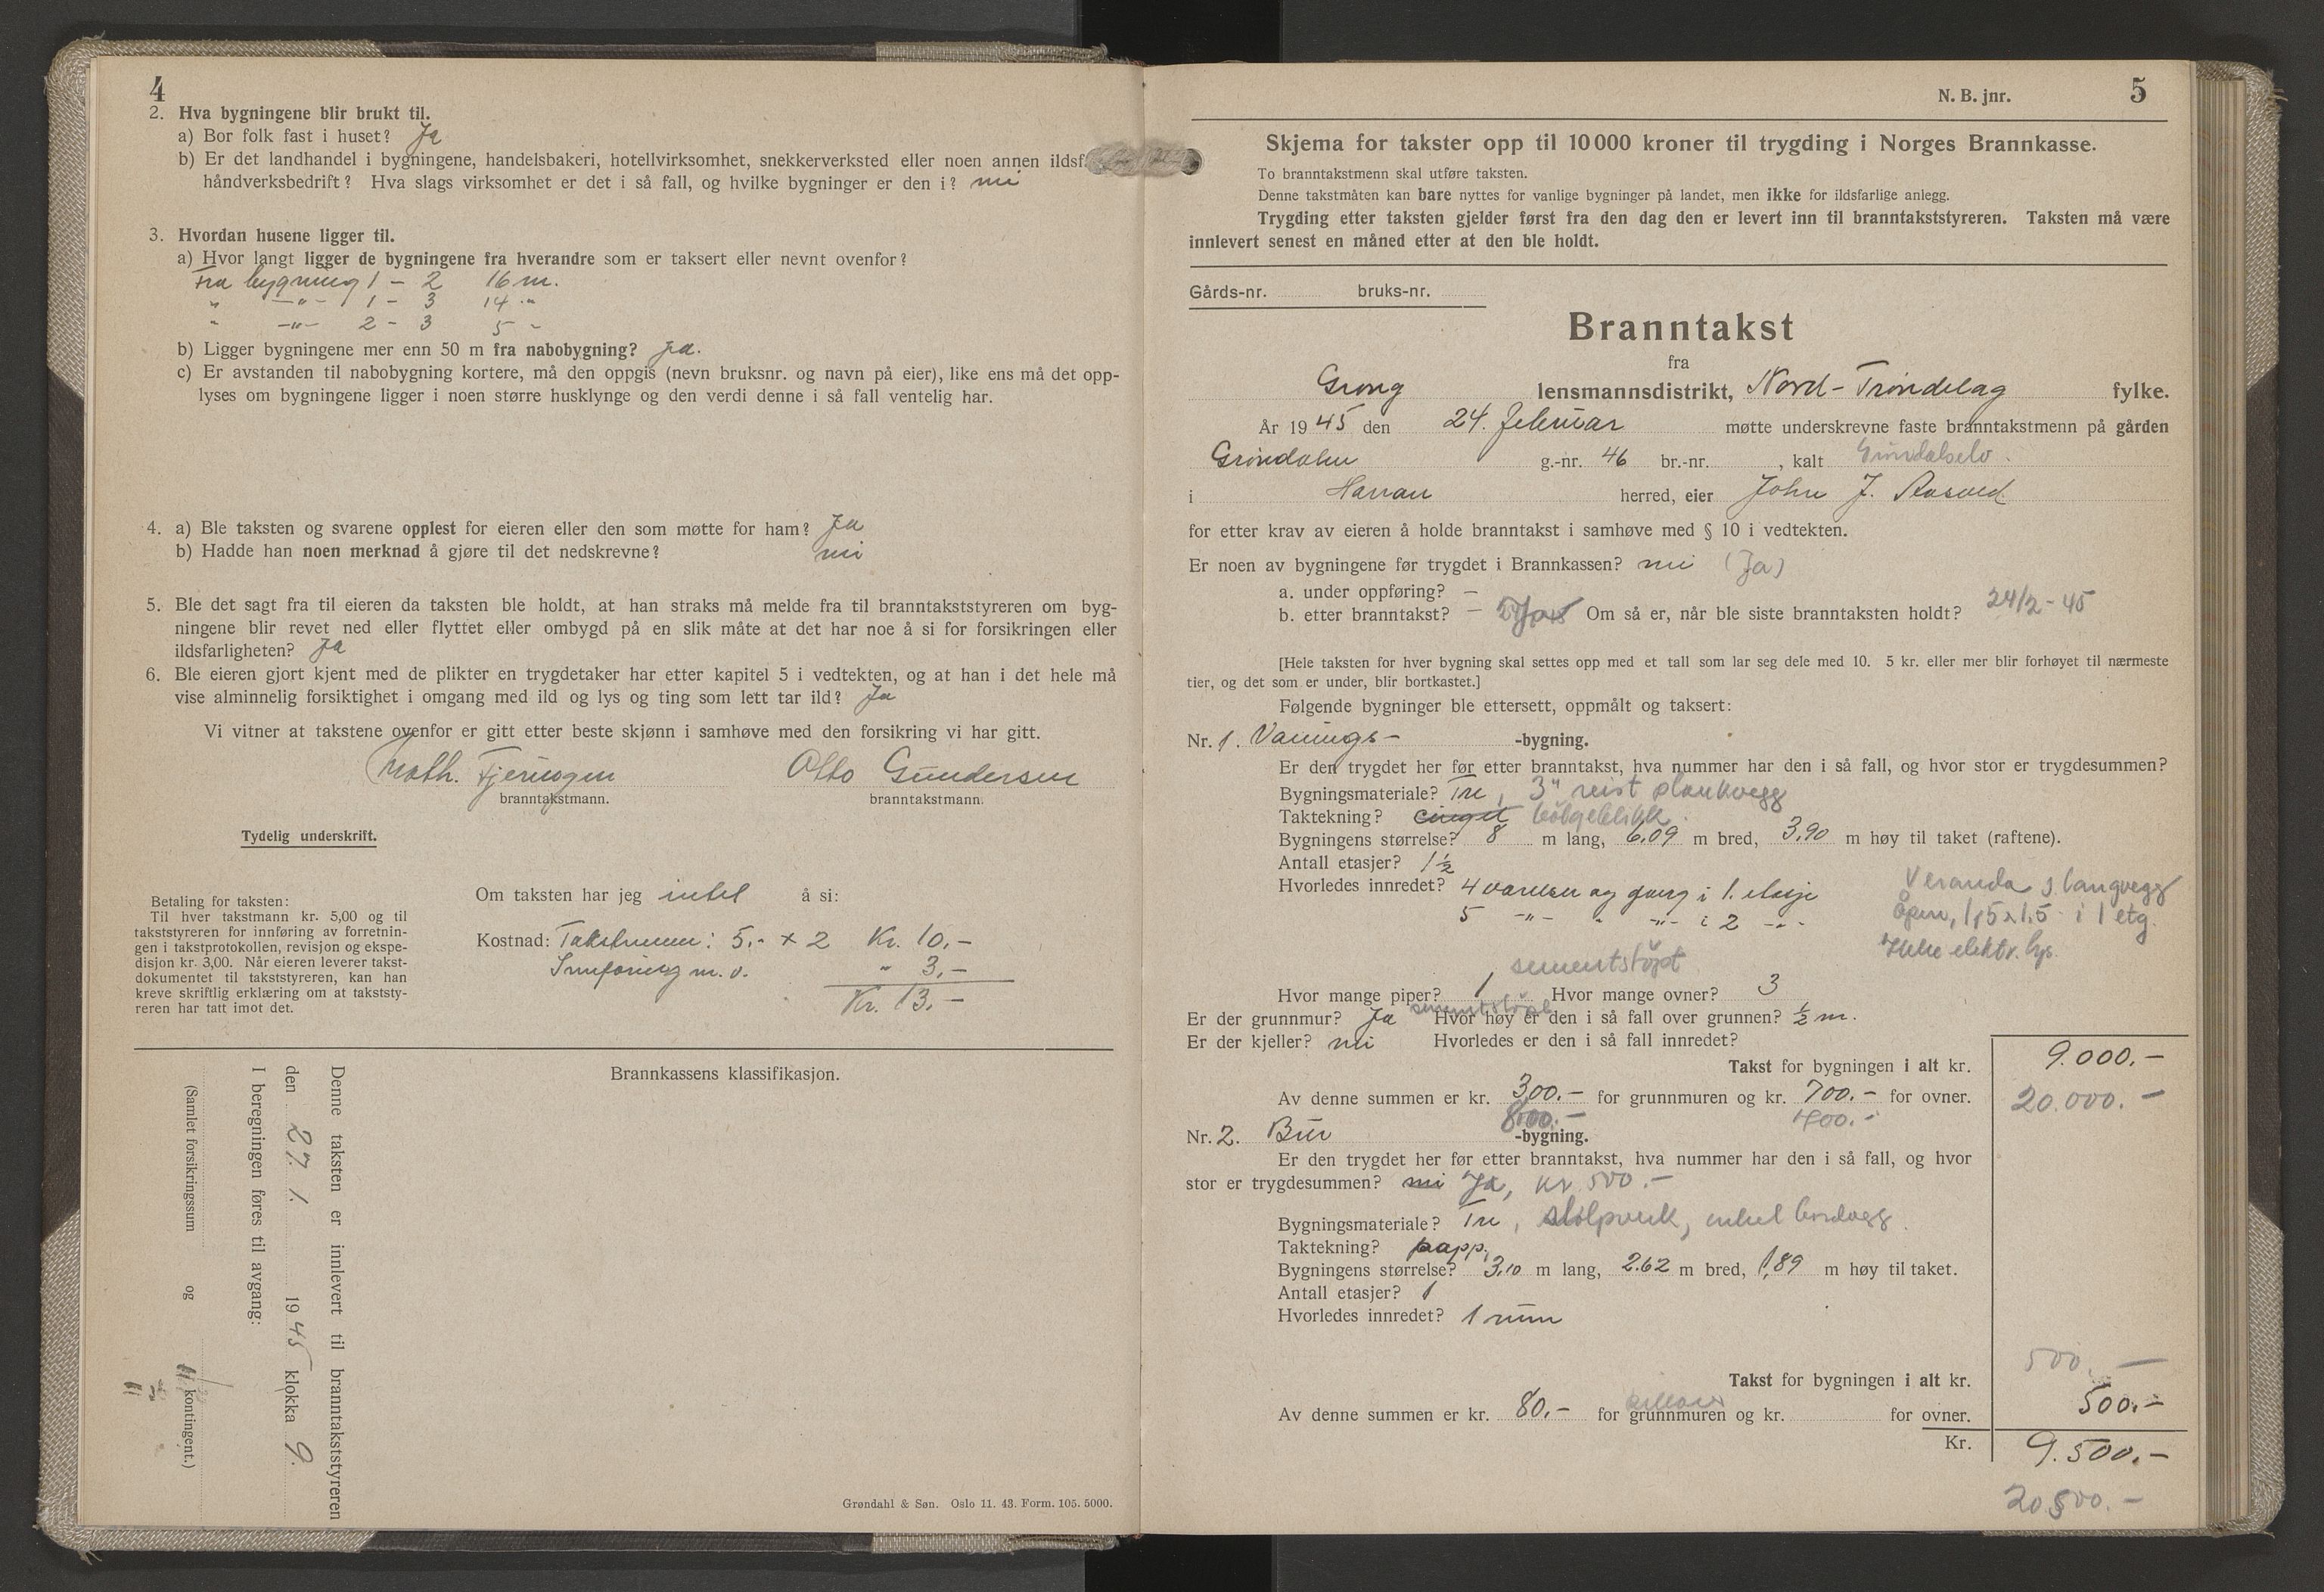 4
2. Hva bygningene blir brukt til.
a) Bor folk fast i huset? Ja
b) Er det landhandel i bygningene, handelsbakeri, hotellvirksomhet, snekkerverksted eller noen annen ildsf
håndverksbedrift? Hva slags virksomhet er det i så fall, og hvilke bygninger er den i? nei
3. Hvordan husene ligger til.
a) Hvor langt ligger de bygningene fra hverandre som er taksert eller nevnt ovenfor?
Fra bygning 1 - 2 16 m.
" -"- 1 - 3 14 "
" -"- 2 - 3 5 "
b) Ligger bygningene mer enn 50 m fra nabobygning? Ja.
c) Er avstanden til nabobygning kortere, må den oppgis (nevn bruksnr. og navn på eier), like ens må det opp-
lyses om bygningene ligger i noen større husklynge og den verdi denne i så fall ventelig har.
4. a) Ble taksten og svarene opplest for eieren eller den som møtte for ham? Ja
b) Hadde han noen merknad å gjøre til det nedskrevne? nei
5. Ble det sagt fra til eieren da taksten ble holdt, at han straks må melde fra til branntakststyreren om byg-
ningene blir revet ned eller flyttet eller ombygd på en slik måte at det har noe å si for forsikringen eller
ildsfarligheten? Ja
6. Ble eieren gjort kjent med de plikter en trygdetaker har etter kapitel 5 i vedtekten, og at han i det hele må
vise alminnelig forsiktighet i omgang med ild og lys og ting som lett tar ild? Ja
Vi vitner at takstene ovenfor er gitt etter beste skjønn i samhøve med den forsikring vi har gitt.
Math. Fjerdingen Otto Gundersen
branntakstmann. branntakstmann.
Tydelig underskrift.
Betaling for taksten:
Til hver takstmann kr. 5,00 og til
takststyreren for innføring av forretnin-
gen i takstprotokollen, revisjon og ekspe-
disjon kr. 3,00. Når eieren leverer takst-
dokumentet til takststyreren, kan han
kreve skriftlig erklæring om at takststy-
reren har tatt imot det.
Om taksten har jeg intet å si:
Kostnad: Takstmenn: 5.- x 2 Kr. 10,-
Innføring m. v. " 3,-
Kr. 13.-
Denne taksten er innlevert til branntakststyreren
den 27. 1. 1945 klokka 9.
I beregningen føres til avgang:
(Samlet forsikringssum og kontingent.)
Brannkassens klassifikasjon.
Grøndahl & Søn. Oslo 11. 43. Form. 105. 5000.
N. B. jnr. 5
Skjema for takster opp til 10 000 kroner til trygding i Norges Brannkasse.
To branntakstmenn skal utføre taksten.
Denne takstmåten kan bare nyttes for vanlige bygninger på landet, men ikke for ildsfarlige anlegg.
Trygding etter taksten gjelder først fra den dag den er levert inn til branntakststyreren. Taksten må være
innlevert senest en måned etter at den ble holdt.
Gårds-nr. bruks-nr.
Branntakst
fra
Grong lensmannsdistrikt, Nord-Trøndelag fylke.
År 1945 den 24. februar møtte underskrevne faste branntakstmenn på gården
Grøndalen g.-nr. 46 br.-nr. , kalt Grøndalselv.
i Harran herred, eier John J. Aasved
for etter krav av eieren å holde branntakst i samhøve med § 10 i vedtekten.
Er noen av bygningene før trygdet i Brannkassen? nei (Ja)
a. under oppføring? -
b. etter branntakst? - Om så er, når ble siste branntaksten holdt? 24/2-45
[Hele taksten for hver bygning skal settes opp med et tall som lar seg dele med 10. 5 kr. eller mer blir forhøyet til nærmeste
tier, og det som er under, blir bortkastet.]
Følgende bygninger ble ettersett, oppmålt og taksert:
Nr. 1. Vånings- -bygning.
Er den trygdet her før etter branntakst, hva nummer har den i så fall, og hvor stor er trygdesummen?
Bygningsmateriale? Tre, 3" reist plankvegg
Taktekning? bølgeblikk.
Bygningens størrelse? 8 m lang, 6,09 m bred, 3,90 m høy til taket (raftene).
Antall etasjer? 1½
Hvorledes innredet? 4 værelser og gang i 1. etasje
5 -"- " -"- i 2 -"-
Veranda s. langvegg
åpen, 1,5x1,5 i 1 etg.
Ikke elektr. lys.
sementstøpt
Hvor mange piper? 1 Hvor mange ovner? 3
sementstøpt
Er der grunnmur? Ja Hvor høy er den i så fall over grunnen? ½ m.
Er der kjeller? nei Hvorledes er den i så fall innredet?
Takst for bygningen i alt kr. 9.000,-
Av denne summen er kr. 300.- for grunnmuren og kr. 700.- for ovner. 20.000.-
800.- 400.-
Nr. 2. Bur -bygning.
Er den trygdet her før etter branntakst, hva nummer har den i så fall, og hvor
stor er trygdesummen? nei Ja, kr 500.-
Bygningsmateriale? Tre, stolpverk, enkel bordvegg.
Taktekning? papp.
Bygningens størrelse? 3,10 m lang, 2.62 m bred, 1,89 m høy til taket.
Antall etasjer? 1
Hvorledes innredet? 1 rum
500.-
Takst for bygningen i alt kr. 500.-
Av denne summen er kr. 80.- for grunnmuren og kr. for ovner.
Kr. 9.500.-
20.500.-